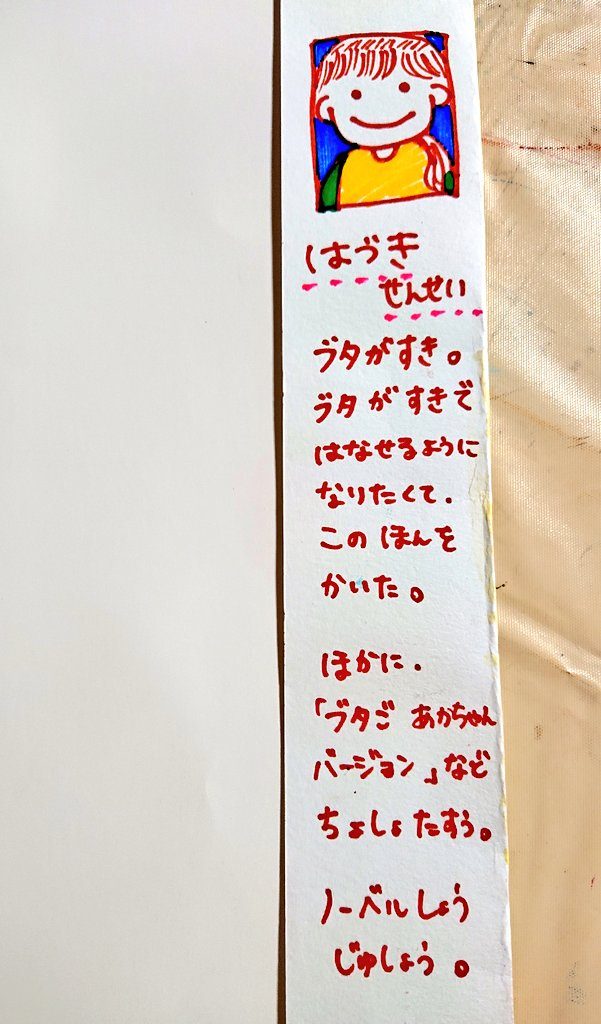 はづき
せんせい
ブタがすき。
ブタがすきで
はなせるように
なりたくて、
このほんを
かいた。
ほかに、
「ブタご あかちゃん
バージョン」など
ちょしょたすう。
ノーベルしょう
じゅしょう。